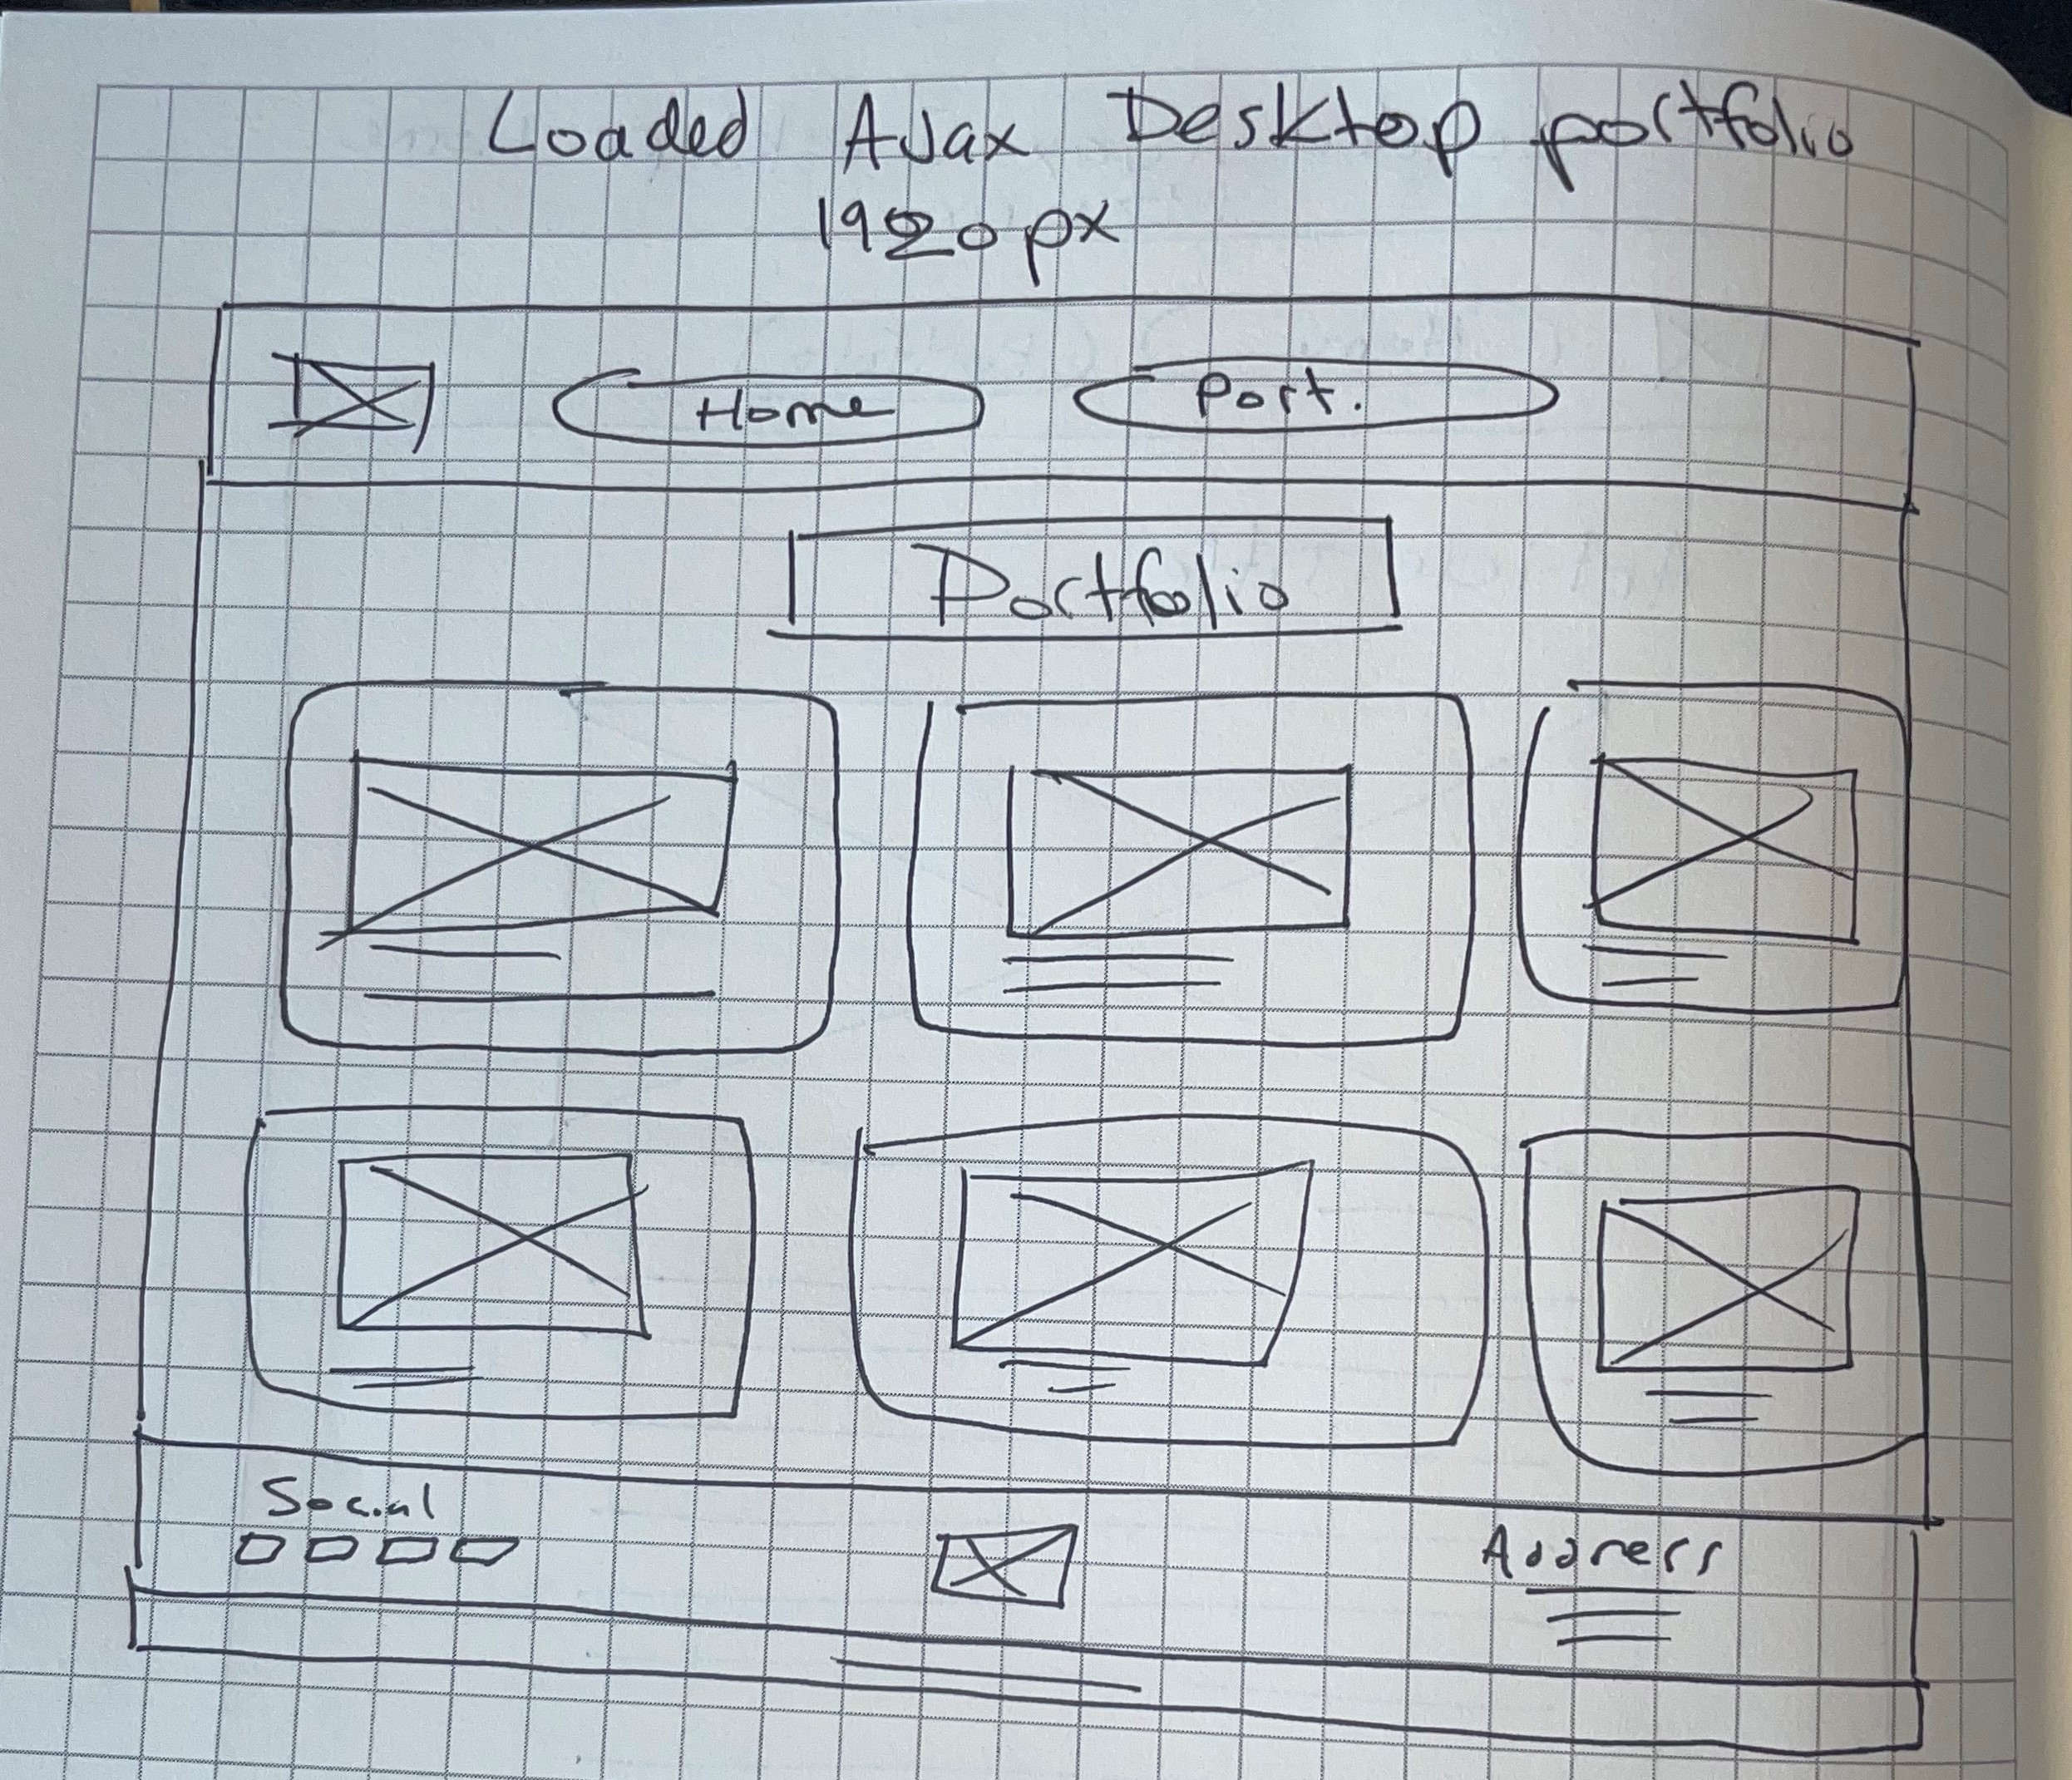 Loaded AJax Desktop portfolio
1920px
Home Port.
Portfolio
Social
Address